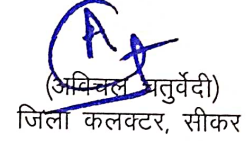 (अविचल चतुर्वेदी)
जिला कलक्टर, सीकर